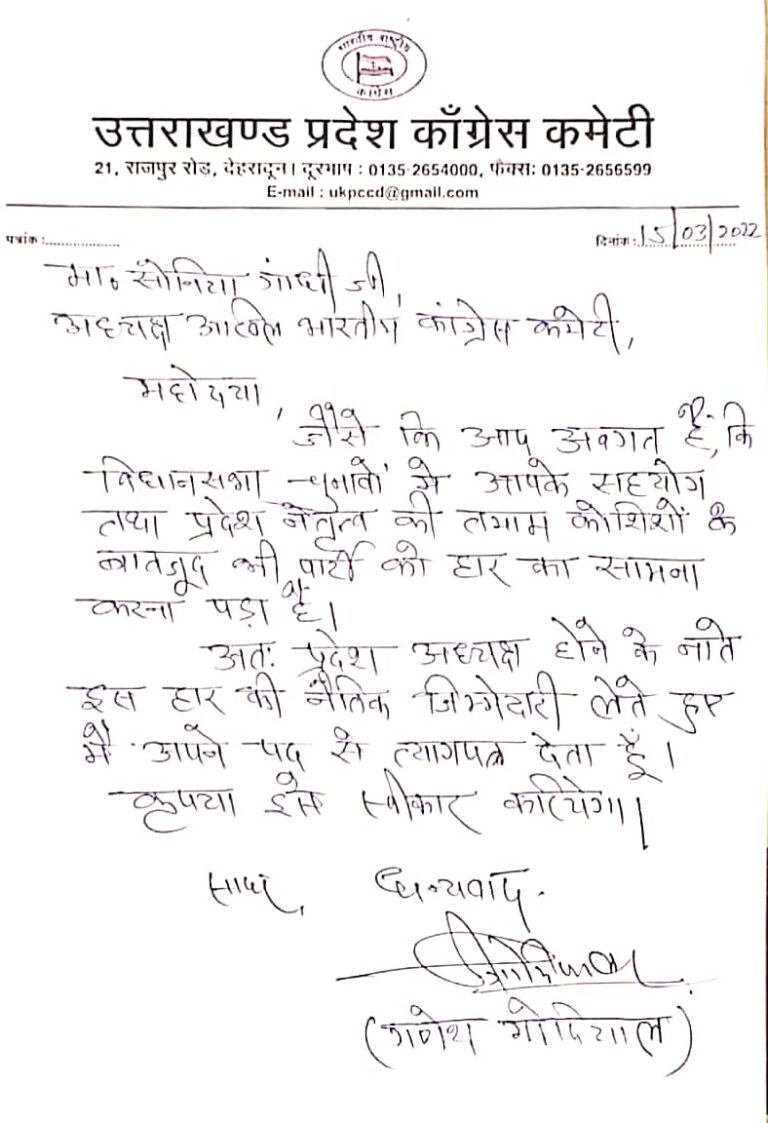 भारतीय राष्ट्रीय
कांग्रेस
उत्तराखण्ड प्रदेश काँग्रेस कमेटी
21, राजपुर रोड, देहरादून। दूरभाष : 0135-2654000, फैक्सः 0135-2656599
E-mail : ukpccd@gmail.com
पत्रांक :.................... दिनांक : 15/03/2022
मा० सोनिया गांधी जी,
अध्यक्ष अखिल भारतीय कांग्रेस कमेटी,
महोदया,
जैसे कि आप अवगत हैं, कि
विधानसभा चुनावों में आपके सहयोग
तथा प्रदेश नेतृत्व की तमाम कोशिशों के
बावजूद भी पार्टी को हार का सामना
करना पड़ा है।
अतः प्रदेश अध्यक्ष होने के नाते
इस हार की नैतिक जिम्मेदारी लेते हुए
मैं अपने पद से त्यागपत्र देता हूँ।
कृपया इसे स्वीकार करियेगा।
सादर, धन्यवाद.
(गणेश गोदियाल)